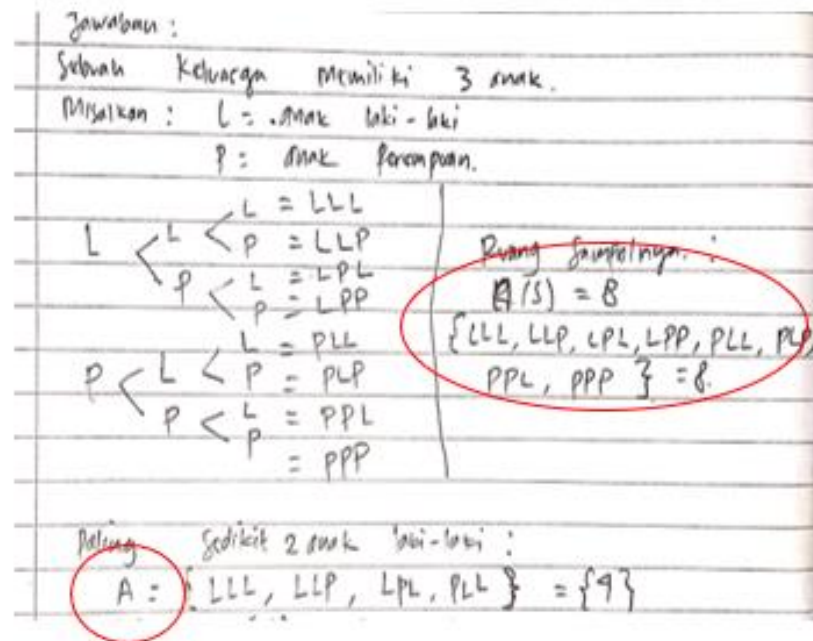 Jawaban :
Sebuah Keluarga memiliki 3 anak.
Misalkan : L = anak laki-laki
P = anak Perempuan.
L < L < L = LLL
P = LLP
P < L = LPL
P = LPP
P < L < L = PLL
P = PLP
P < L = PPL
P
= PPP
Ruang Sampelnya :
(S) = 8
{LLL, LLP, LPL, LPP, PLL, PLP,
PPL, PPP } = 8.
Paling Sedikit 2 anak laki-laki :
A = { LLL, LLP, LPL, PLL } = {4}